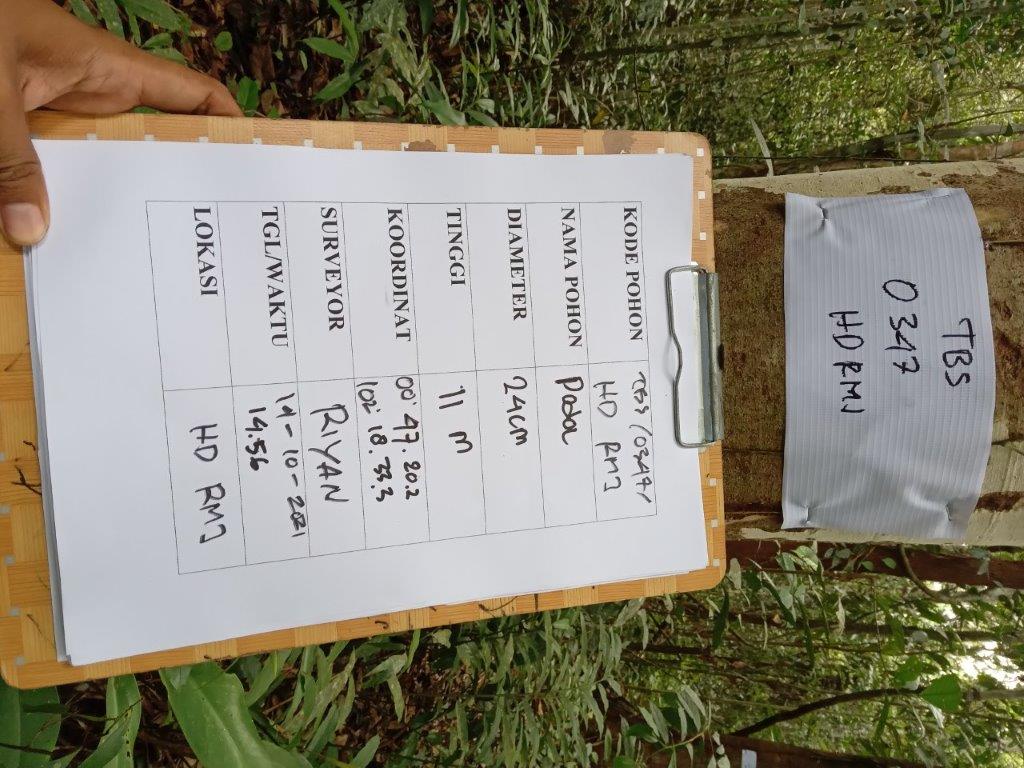 TBS
0347
HDRMJ
KODE POHON TBS/0347/
HD RMJ
NAMA POHON
DIAMETER 24cm
TINGGI 11 m
KOORDINAT 00° 47. 20.2
102. 18. 33.3
SURVEYOR RIYAN
TGL/WAKTU 14-10-2021
14.56
LOKASI HD RMJ